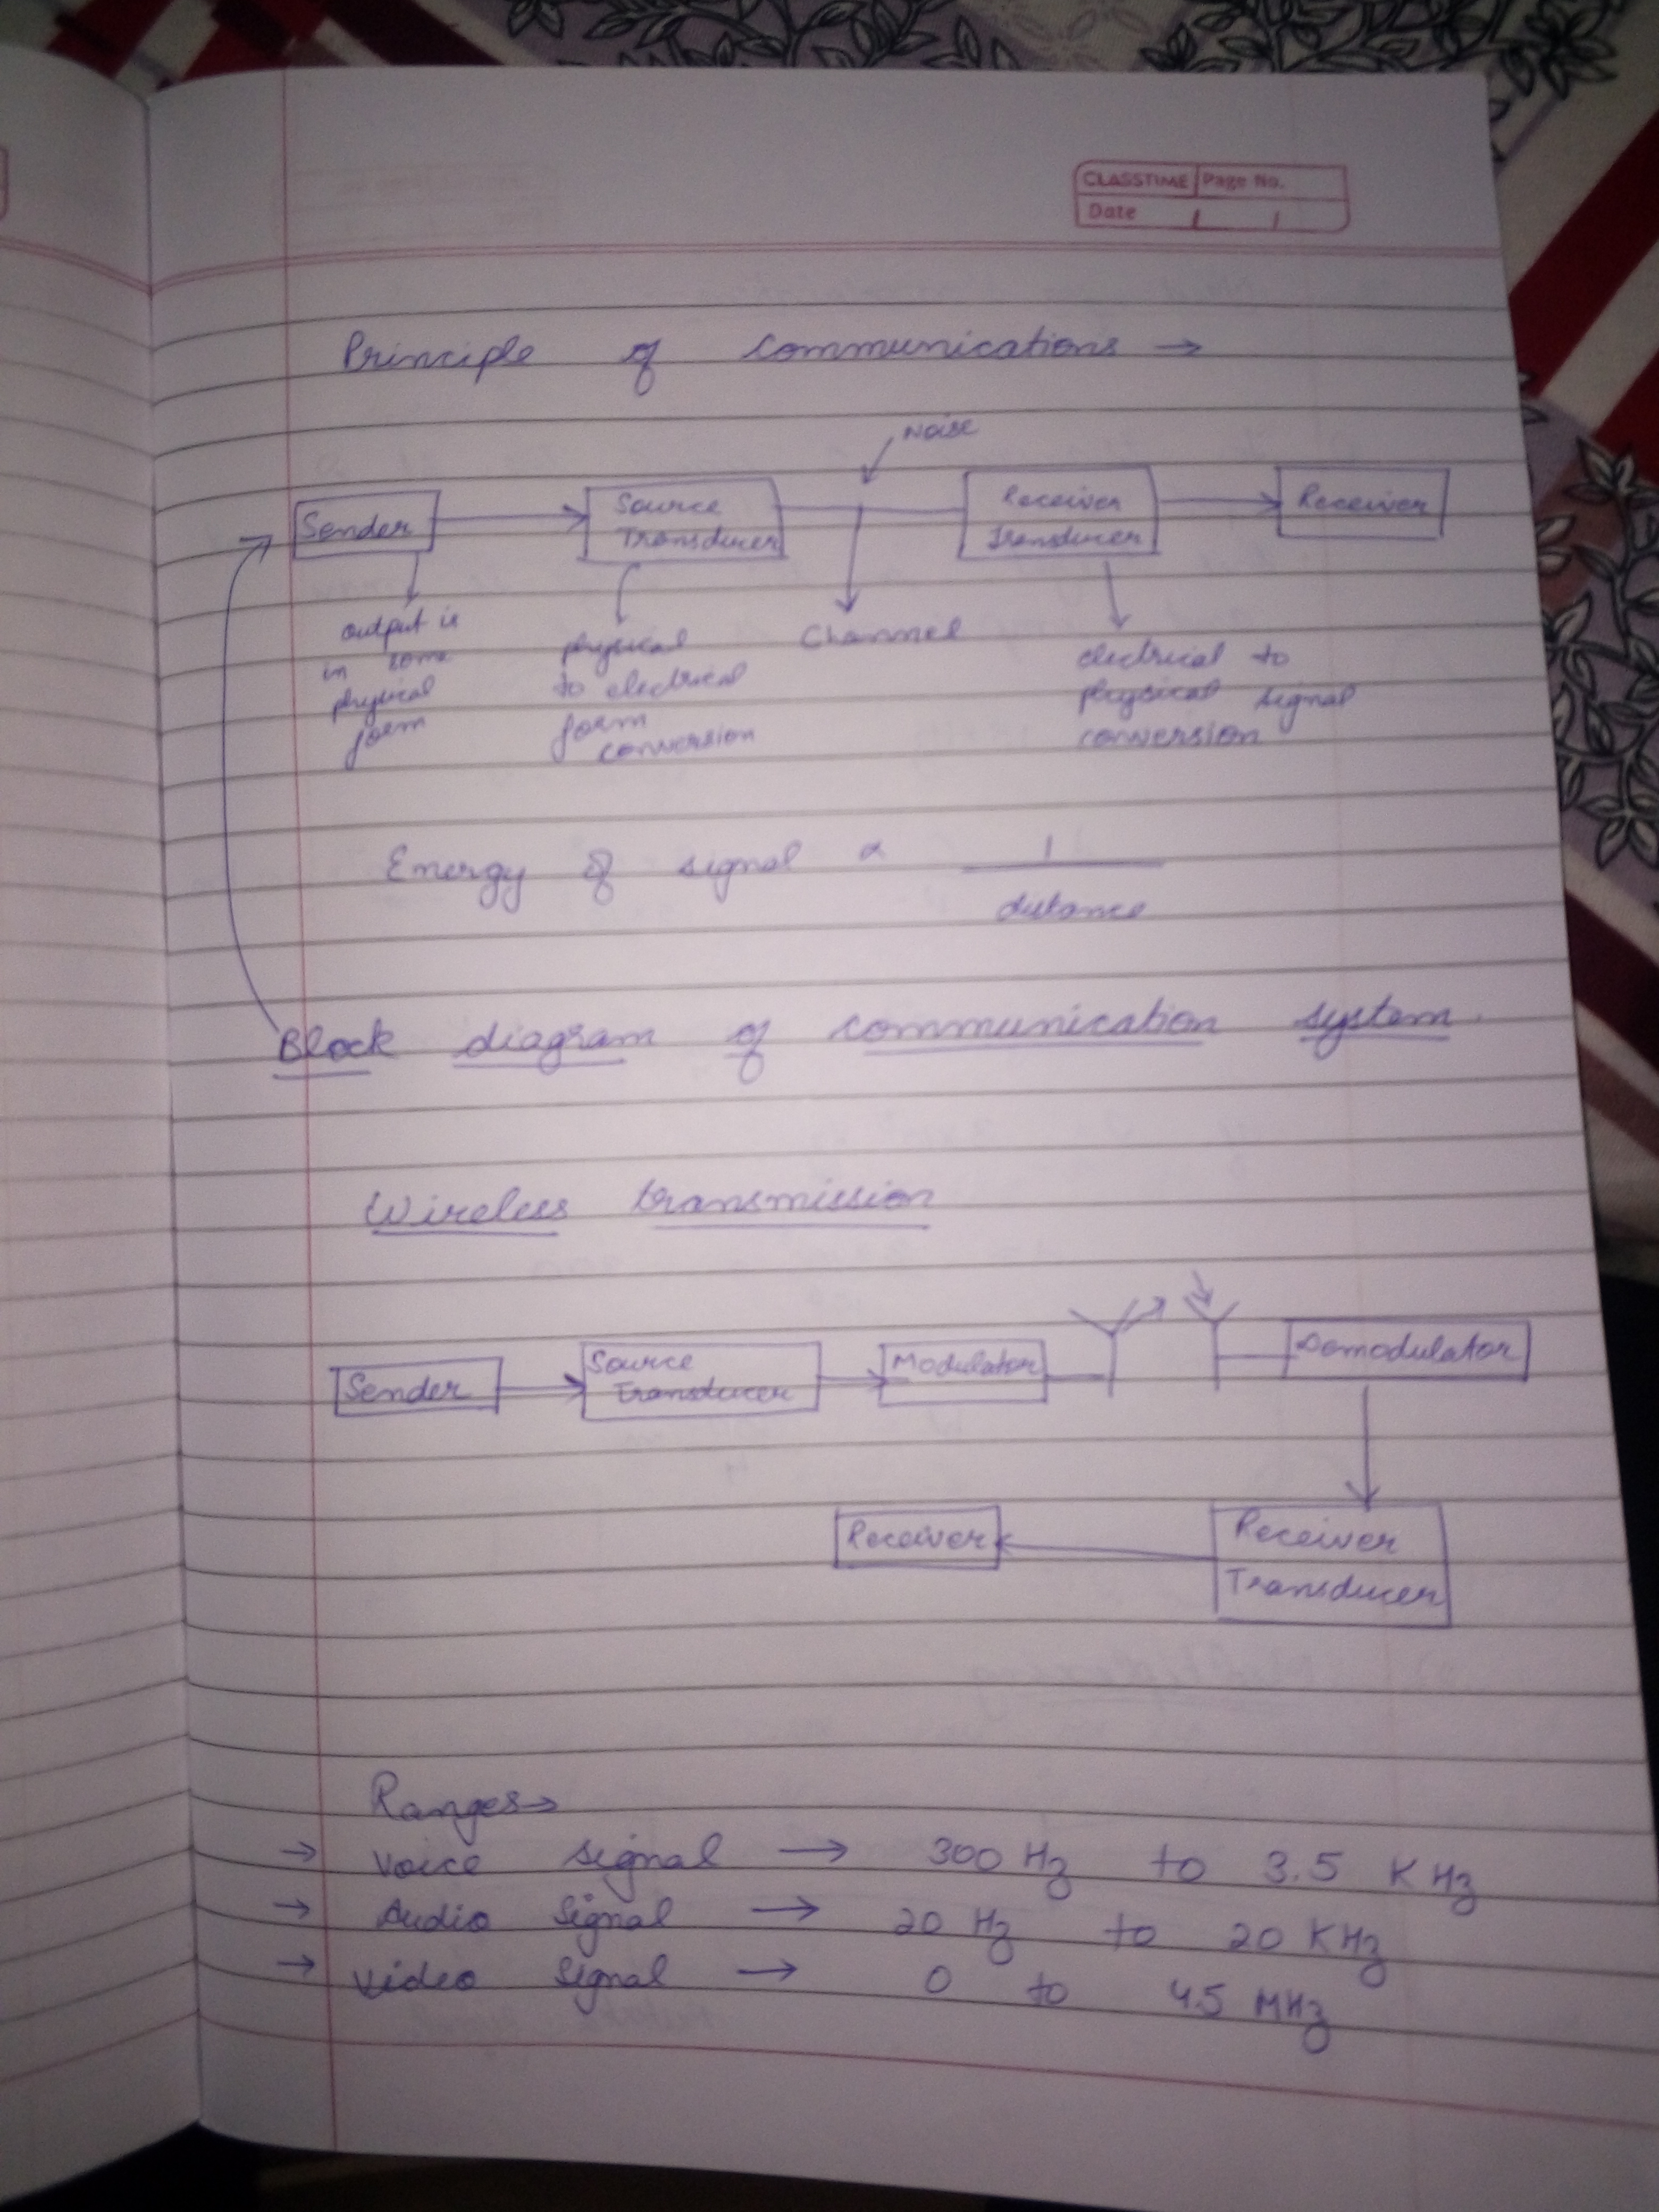 CLASSTIME Page No.
Date / /
Principle of communications →
Noise
Sender
Source
Transducer
Receiver
Transducer
Receiver
output is
in some
physical
form
physical
to electrical
form
conversion
Channel
electrical to
physical signal
conversion
Energy of signal ∝ 1
distance
Block diagram of communication system
Wireless transmission
Sender
Source
Transducer
Modulator
Demodulator
Receiver
Receiver
Transducer
Ranges→
→ Voice signal → 300 Hz to 3.5 KHz
→ Audio signal → 20 Hz to 20 KHz
→ Video signal → 0 to 4.5 MHz